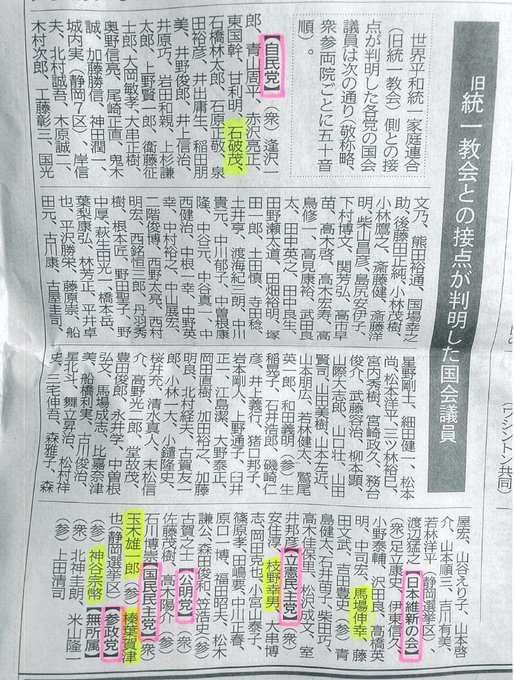 (ワシントン共同)
旧統一教会との接点が判明した国会議員
世界平和統一家庭連合
(旧統一教会)側との接
点が判明した各党の国会
議員は次の通り(敬称略、
衆参両院ごとに五十音
順)。
【自民党】(衆)逢沢一
郎、青山周平、赤沢亮正、
東国幹、甘利明、石破茂、
石橋林太郎、石原正敬、泉
田裕彦、井出庸生、稲田朋
美、井野俊郎、井上信治、
井原巧、岩田和親、上杉謙
太郎、上野賢一郎、衛藤征
士郎、大岡敏孝、大串正樹、
奥野信亮、尾崎正直、鬼木
誠、加藤勝信、神田潤一、
城内実(静岡7区)、岸信
夫、北村誠吾、木原誠二、
木村次郎、工藤彰三、国光
文乃、熊田裕通、国場幸之
助、後藤田正純、小林茂樹、
小林鷹之、斎藤健、斎藤洋
明、柴山昌彦、島尻安伊子、
下村博文、関芳弘、高市早
苗、高木啓、高木宏寿、高
鳥修一、高見康裕、武田良
太、田中英之、田中良生、
田野瀬太道、田畑裕明、塚
田一郎、土田慎、寺田稔、
土井亨、渡海紀三朗、中川
貴元、中川郁子、中曽根康
隆、中谷元、中谷真一、中
西健治、中根一幸、中野英
幸、中村裕之、中山展宏、
二階俊博、西野太亮、西村
明宏、西銘恒三郎、丹羽秀
樹、根本匠、野田聖子、野
中厚、萩生田光一、橋本岳、
葉梨康弘、林芳正、平井卓
也、平沢勝栄、藤原崇、船
田元、古川康、古屋圭司、
星野剛士、細田健一、松本
尚、松本洋平、三ツ林裕巳、
宮内秀樹、宮崎政久、務台
俊介、武藤容治、柳本顕、
山際大志郎、山口壮、山田
賢司、山田美樹、山本左近、
山本朋広、若林健太、鷲尾
英一郎、和田義明(参)生
稲晃子、石井浩郎、磯崎仁
彦、井上義行、猪口邦子、
岩本剛人、上野通子、臼井
正一、江島潔、大野泰正、
岡田直樹、加田裕之、加藤
明良、北村経夫、古賀友一
郎、小林一大、小鑓隆史、
桜井充、清水真人、末松信
介、高野光二郎、堂故茂、
豊田俊郎、永井学、中曽根
弘文、馬場成志、比嘉奈津
美、船橋利実、古川俊治、
星北斗、舞立昇治、松村祥
史、三宅伸吾、森雅子、森
屋宏、山谷えり子、山本啓
介、山本順三、吉川有美、
若林洋平(静岡選挙区)、
渡辺猛之【日本維新の会】
(衆)足立康史、伊東信久、
小野泰輔、沢田良、高橋英
明、中司宏、馬場伸幸、藤
田文武、吉田豊史(参)青
島健太、石井苗子、柴田巧、
高木佳保里、松沢成文、室
井邦彦【立憲民主党】(衆)
安住淳、枝野幸男、大串博
志、岡田克也、小宮山泰子、
篠原孝、田嶋要、中川正春、
原口一博、福田昭夫、松木
謙公、森田俊和、笠浩史(参)
古賀之士【公明党】(衆)
佐藤茂樹、高木陽介(参)
石川博崇【国民民主党】(衆)
玉木雄一郎(参)榛葉賀津
也(静岡選挙区)【参政党】
(参)神谷宗幣【無所属】
(衆)北神圭朗、米山隆一
(参)上田清司